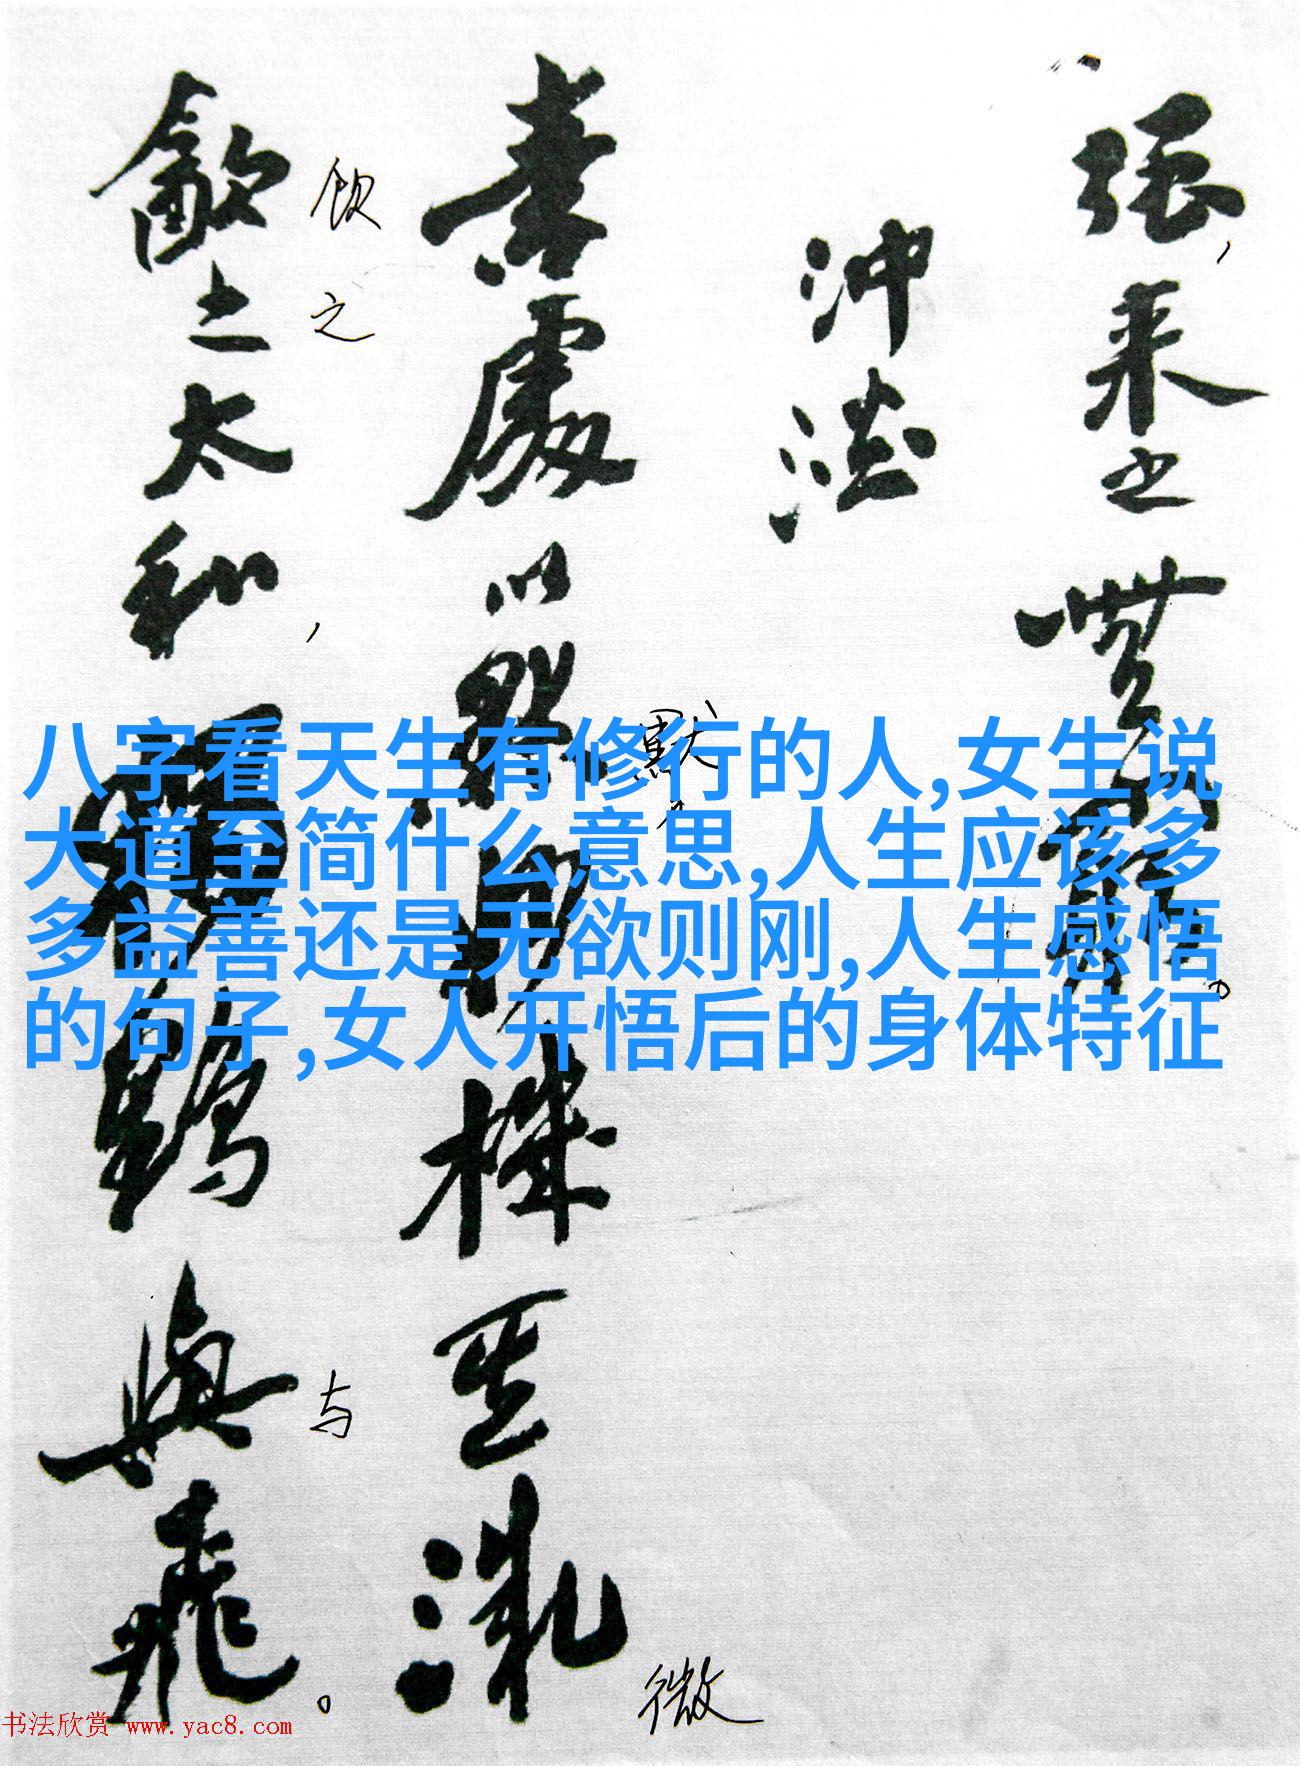 强,来之無窮。
冲淡
素處以默,妙機其微
默
微
飲之太和,獨鶴與飛。
饮
之
与
八字看天生有修行的人,女生说
大道至简什么意思,人生应该多
多益善还是无欲则刚,人生感悟
的句子,女人开悟后的身体特征
书法欣赏 www.yac8.com